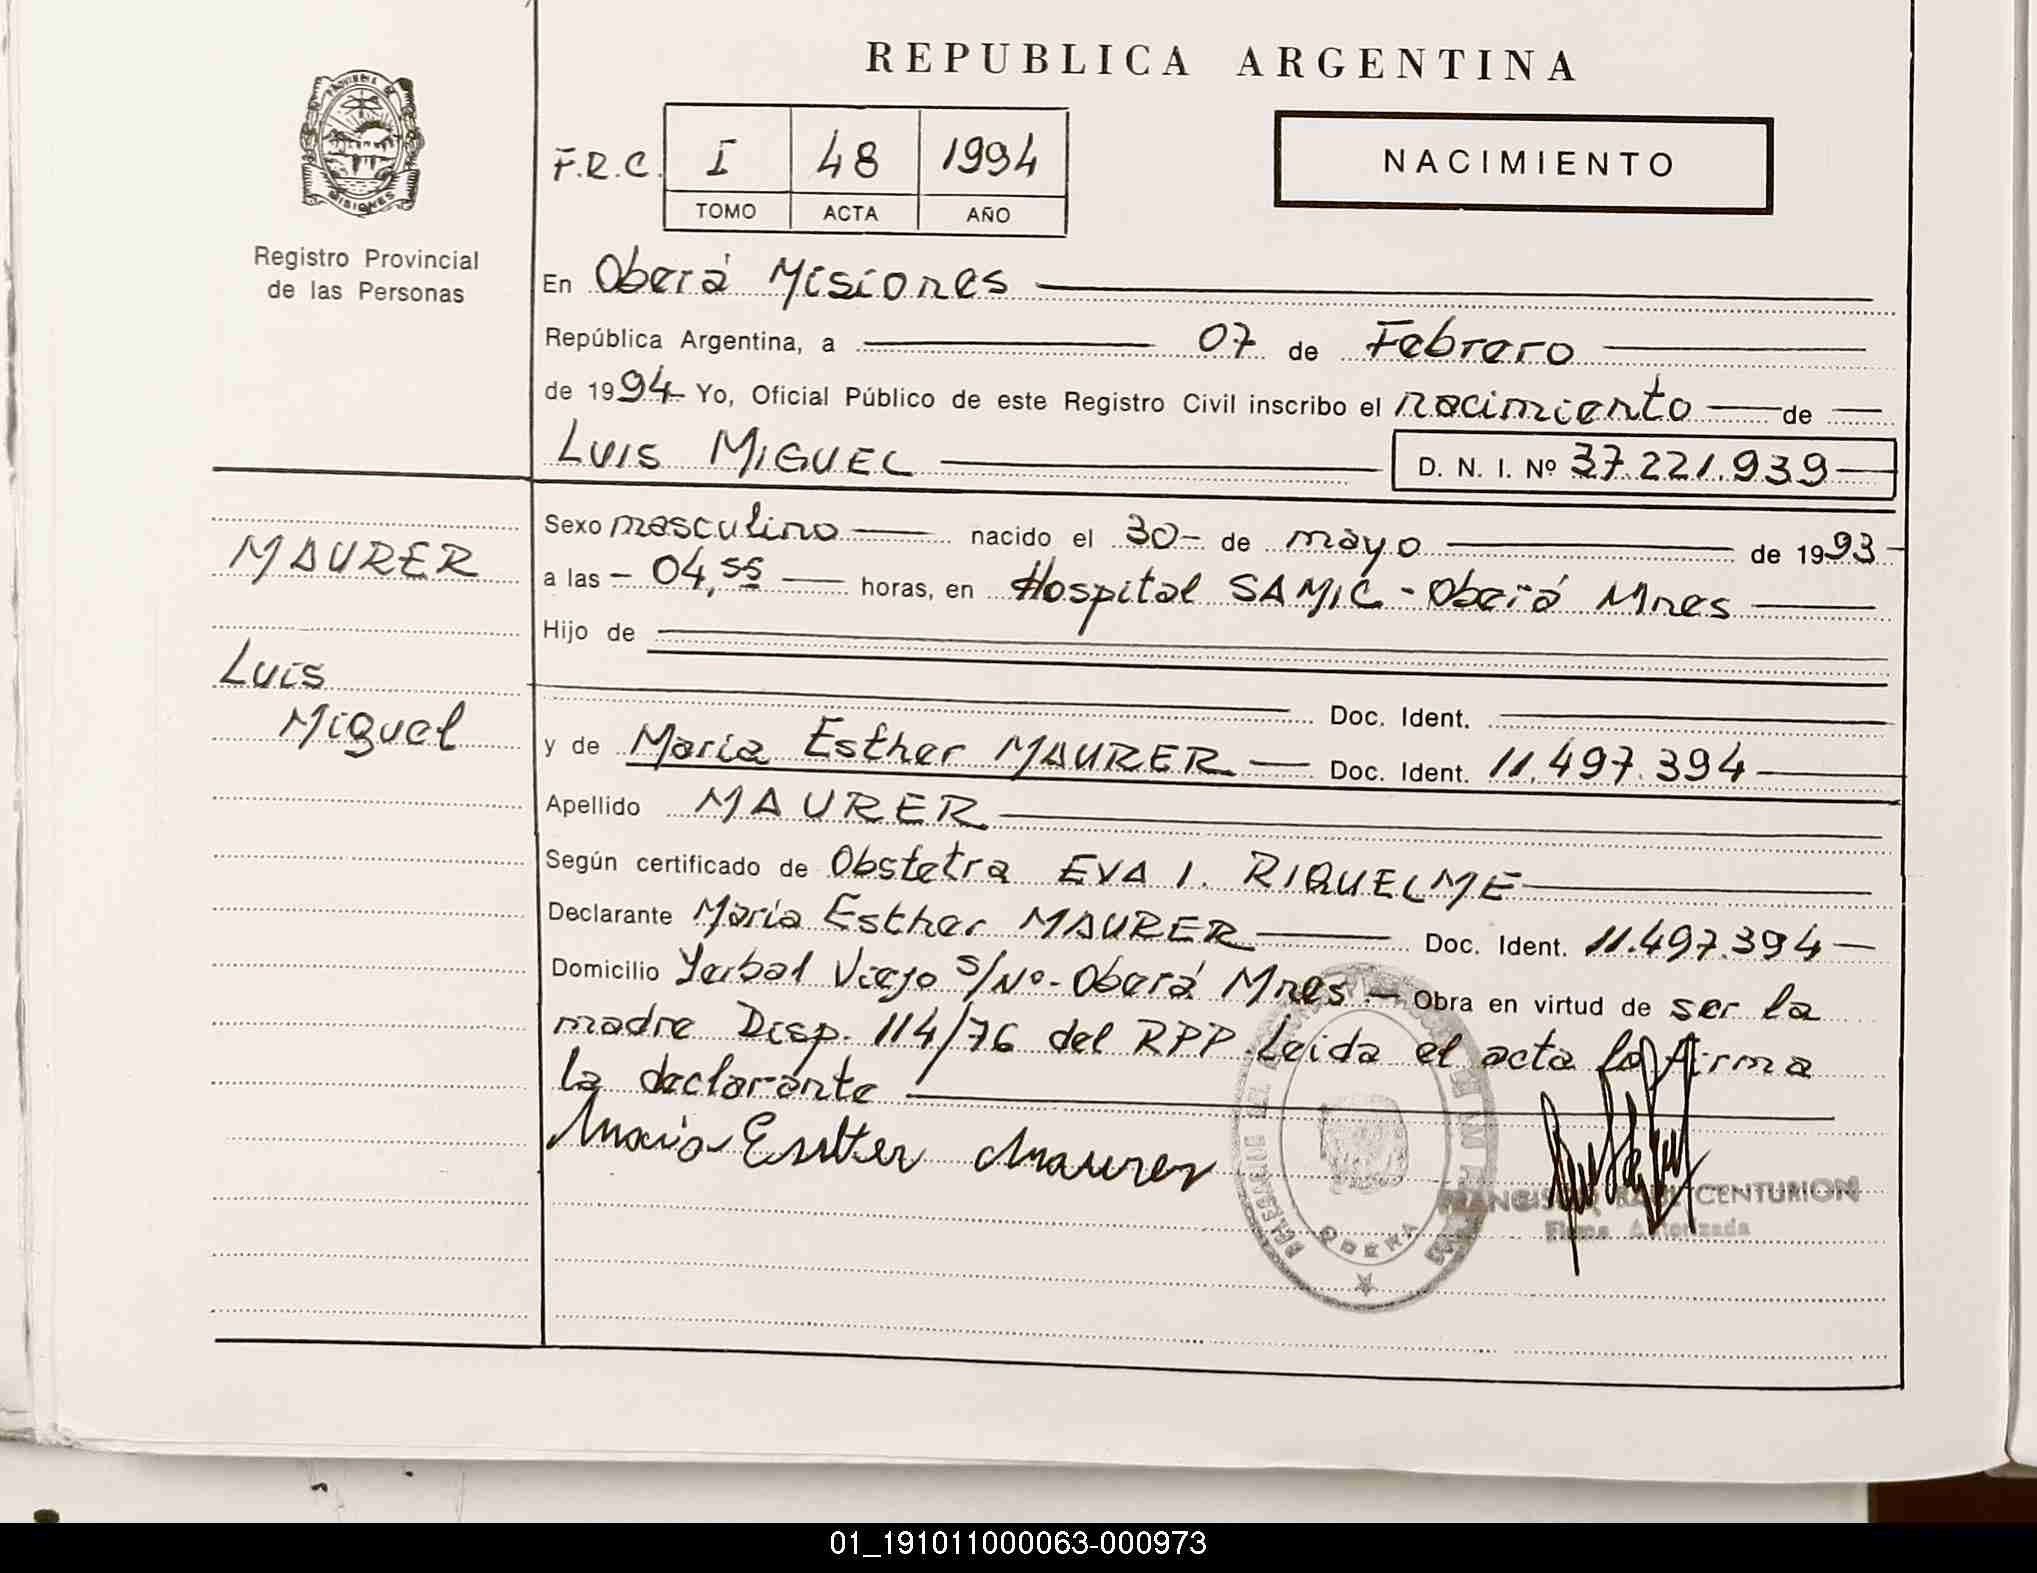 REPUBLICA ARGENTINA
PROVINCIA DE
MISIONES
Registro Provincial
de las Personas
F.R.C. I 48 1994
TOMO ACTA AÑO
NACIMIENTO
En Oberá Misiones
República Argentina, a 07 de Febrero
de 1994 Yo, Oficial Público de este Registro Civil inscribo el nacimiento de
LUIS MIGUEL D. N. I. Nº 37.221.939
MAURER
Luis
Miguel
Sexo masculino nacido el 30 de mayo de 1993
a las 04,55 horas, en Hospital SAMIC - Oberá Mnes
Hijo de
Doc. Ident.
y de Maria Esther MAURER Doc. Ident. 11.497.394
Apellido MAURER
Según certificado de Obstetra EVA I. RIQUELME
Declarante Maria Esther MAURER Doc. Ident. 11.497.394
Domicilio Yerbal Viejo s/Nº - Oberá Mnes Obra en virtud de ser la
madre Disp. 114/76 del RPP. Leida el acta la firma
la declarante
Maria Esther Maurer
OBERA
CENTURION
Firma Autorizada
01_191011000063-000973